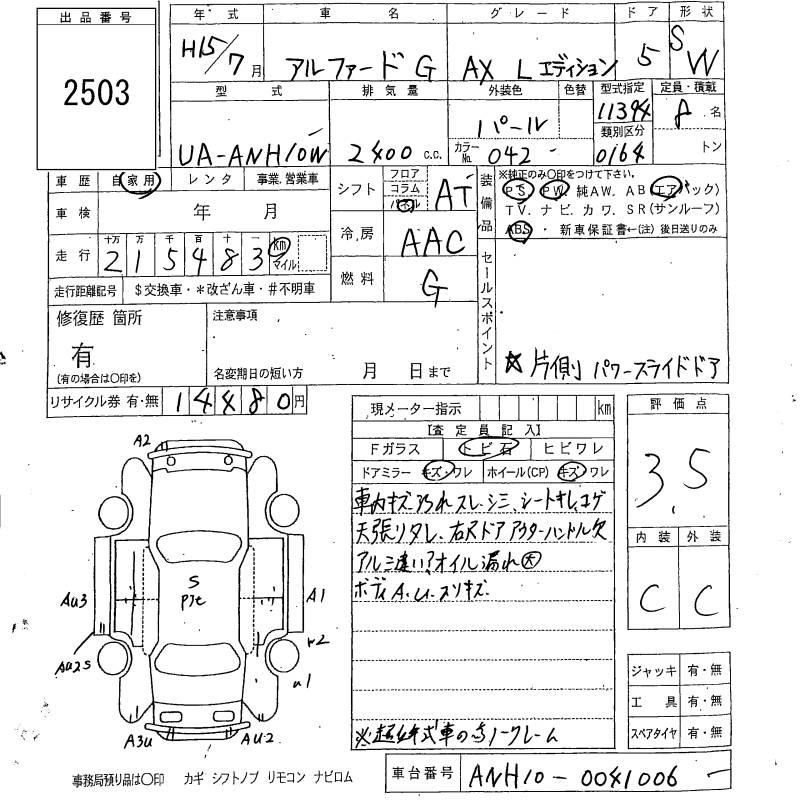 出品番号
2503
年式 車名 グレード ドア 形状
H15/7月 アルファード G AX Lエディション 5 SW
型式 排気量 外装色 色替 型式指定 定員・積載
UA-ANH10W 2400 c.c. パール 11394 8名
カラーNo. 042 類別区分 0164 トン
車歴 自家用 レンタ 事業.営業車
車検 年 月
走行 十万 万 千 百 十 一 km マイル
2 1 5 4 8 3
走行距離記号 $交換車・*改ざん車・#不明車
シフト フロア コラム パネル AT
冷房 AAC
燃料 G
装備品
※純正のみ〇印をつけて下さい。
PS. PW. 純AW. AB(エアバック)
TV. ナビ. カワ. SR(サンルーフ)
ABS ・ 新車保証書←(注)後日送りのみ
セールスポイント
☆片側パワースライドドア
修復歴 箇所
有
(有の場合は〇印を)
注意事項
名変期日の短い方 月 日まで
リサイクル券 有・無 14480円
現メーター指示 km
【査定員記入】
Fガラス トビ石 ヒビワレ
ドアミラー キズ・ワレ ホイール(CP) キズ・ワレ
車内キズ.スレ.シミ、シートキレ.コゲ
天張リタレ. 右Sドアアウターハンドル欠
アルミ違い?オイル漏れ大
ボディA.U.スリキズ.
※超低年式車の為ノークレーム
評価点
3.5
内装 外装
C C
ジャッキ 有・無
工具 有・無
スペアタイヤ 有・無
A2
S
AU3
A1
AU2S
r2
u1
A3U
AU2
事務局預り品は〇印 カギ シフトノブ リモコン ナビロム
車台番号 ANH10-0041006